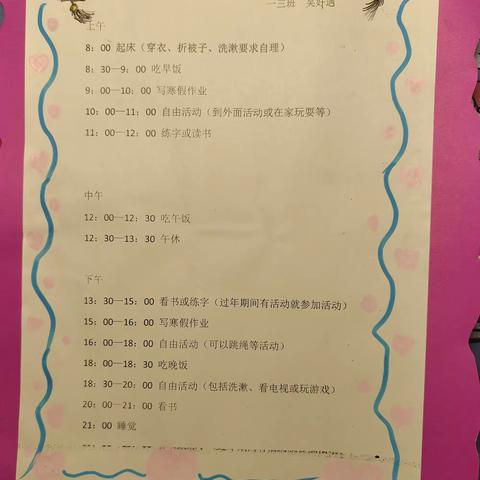 一三班 吴好遇
上午
8：00 起床（穿衣、折被子、洗漱要求自理）
8：30—9：00 吃早饭
9：00—10：00 写寒假作业
10：00—11：00 自由活动（到外面活动或在家玩耍等）
11：00—12：00 练字或读书
中午
12：00—12：30 吃午饭
12：30—13：30 午休
下午
13：30—15：00 看书或练字（过年期间有活动就参加活动）
15：00—16：00 写寒假作业
16：00—18：00 自由活动（可以跳绳等活动）
18：00—18：30 吃晚饭
18：30—20：00 自由活动（包括洗漱、看电视或玩游戏）
20：00—21：00 看书
21：00 睡觉